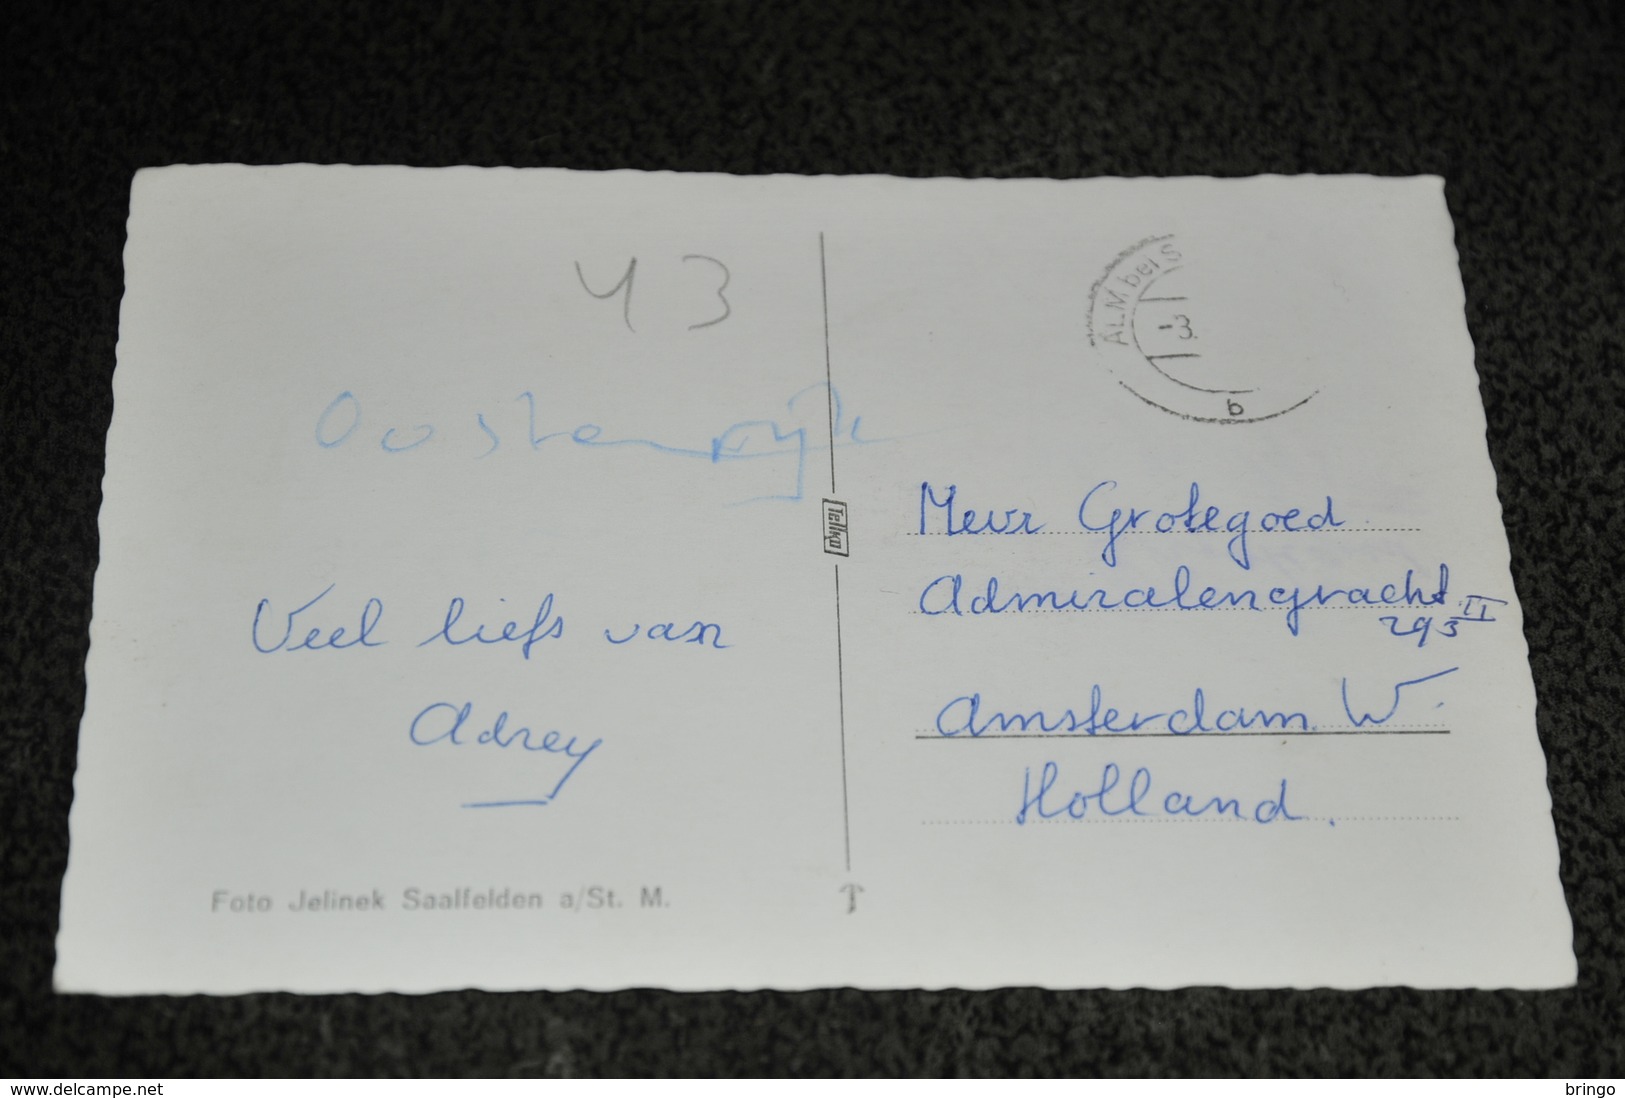 43
Oostenrijk
Veel liefs van
Adrey
Foto Jelinek Saalfelden a/St. M.
Tellko
T
ALM bei S
-3.
b
Mevr Grotegoed
Admiralengracht
293 II
Amsterdam. W.
Holland.
www.delcampe.net
bringo